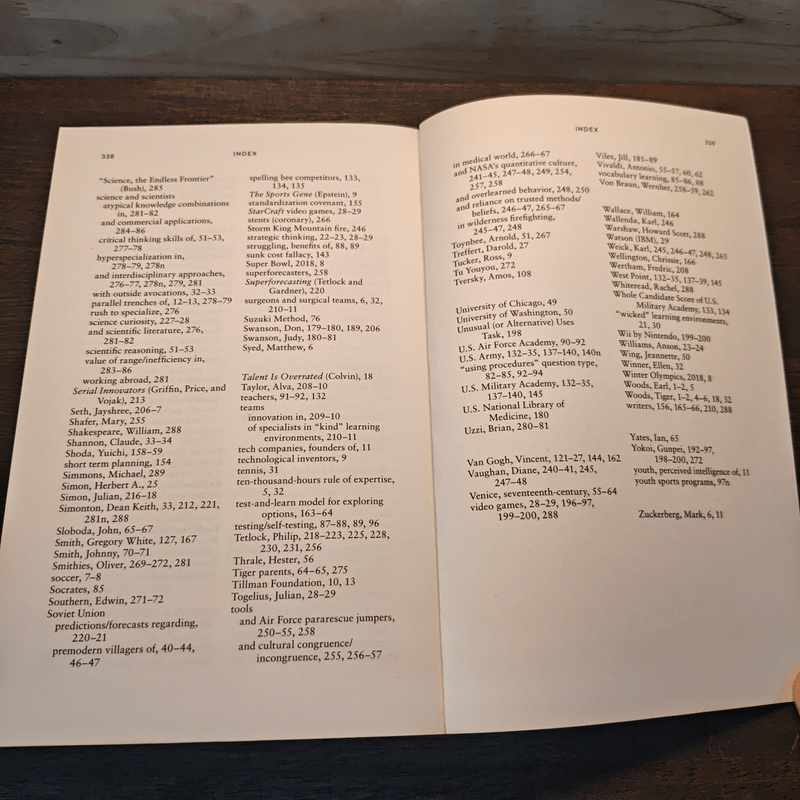 338
INDEX
"Science, the Endless Frontier"
(Bush), 285
science and scientists
atypical knowledge combinations
in, 281–82
and commercial applications,
284–86
critical thinking skills of, 51–53,
277–78
hyperspecialization in,
278–79, 278n
and interdisciplinary approaches,
276–77, 278n, 279, 281
with outside avocations, 32–33
parallel trenches of, 12–13, 278–79
rush to specialize, 276
science curiosity, 227–28
and scientific literature, 276,
281–82
scientific reasoning, 51–53
value of range/inefficiency in,
283–86
working abroad, 281
Serial Innovators (Griffin, Price, and
Vojak), 213
Seth, Jayshree, 206–7
Shafer, Mary, 255
Shakespeare, William, 288
Shannon, Claude, 33–34
Shoda, Yuichi, 158–59
short term planning, 154
Simmons, Michael, 289
Simon, Herbert A., 25
Simon, Julian, 216–18
Simonton, Dean Keith, 33, 212, 221,
281n, 288
Sloboda, John, 65–67
Smith, Gregory White, 127, 167
Smith, Johnny, 70–71
Smithies, Oliver, 269–272, 281
soccer, 7–8
Socrates, 85
Southern, Edwin, 271–72
Soviet Union
predictions/forecasts regarding,
220–21
premodern villagers of, 40–44,
46–47
spelling bee competitors, 133,
134, 135
The Sports Gene (Epstein), 9
standardization covenant, 155
StarCraft video games, 28–29
stents (coronary), 266
Storm King Mountain fire, 246
strategic thinking, 22–23, 28–29
struggling, benefits of, 88, 89
sunk cost fallacy, 143
Super Bowl, 2018, 8
superforecasters, 258
Superforecasting (Tetlock and
Gardner), 220
surgeons and surgical teams, 6, 32,
210–11
Suzuki Method, 76
Swanson, Don, 179–180, 189, 206
Swanson, Judy, 180–81
Syed, Matthew, 6
Talent Is Overrated (Colvin), 18
Taylor, Alva, 208–10
teachers, 91–92, 132
teams
innovation in, 209–10
of specialists in "kind" learning
environments, 210–11
tech companies, founders of, 11
technological inventors, 9
tennis, 31
ten-thousand-hours rule of expertise,
5, 32
test-and-learn model for exploring
options, 163–64
testing/self-testing, 87–88, 89, 96
Tetlock, Philip, 218–223, 225, 228,
230, 231, 256
Thrale, Hester, 56
Tiger parents, 64–65, 275
Tillman Foundation, 10, 13
Togelius, Julian, 28–29
tools
and Air Force pararescue jumpers,
250–55, 258
and cultural congruence/
incongruence, 255, 256–57
INDEX
339
in medical world, 266–67
and NASA's quantitative culture,
241–45, 247–48, 249, 254,
257, 258
and overlearned behavior, 248, 250
and reliance on trusted methods/
beliefs, 246–47, 265–67
in wilderness firefighting,
245–47, 248
Toynbee, Arnold, 51, 267
Treffert, Darold, 27
Tucker, Ross, 9
Tu Youyou, 272
Tversky, Amos, 108
University of Chicago, 49
University of Washington, 50
Unusual (or Alternative) Uses
Task, 198
U.S. Air Force Academy, 90–92
U.S. Army, 132–35, 137–140, 140n
"using procedures" question type,
82–85, 92–94
U.S. Military Academy, 132–35,
137–140, 145
U.S. National Library of
Medicine, 180
Uzzi, Brian, 280–81
Van Gogh, Vincent, 121–27, 144, 162
Vaughan, Diane, 240–41, 245,
247–48
Venice, seventeenth-century, 55–64
video games, 28–29, 196–97,
199–200, 288
Viles, Jill, 181–89
Vivaldi, Antonio, 55–57, 60, 62
vocabulary learning, 85–86, 88
Von Braun, Wernher, 258–59, 262
Wallace, William, 164
Wallenda, Karl, 246
Warshaw, Howard Scott, 288
Watson (IBM), 29
Weick, Karl, 245, 246–47, 248, 265
Wellington, Chrissie, 166
Wertham, Fredric, 208
West Point, 132–35, 137–39, 145
Whiteread, Rachel, 288
Whole Candidate Score of U.S.
Military Academy, 133, 134
"wicked" learning environments,
21, 30
Wii by Nintendo, 199–200
Williams, Anson, 23–24
Wing, Jeannette, 50
Winner, Ellen, 32
Winter Olympics, 2018, 8
Woods, Earl, 1–2, 5
Woods, Tiger, 1–2, 4–6, 18, 32
writers, 156, 165–66, 210, 288
Yates, Ian, 65
Yokoi, Gunpei, 192–97,
198–200, 272
youth, perceived intelligence of, 11
youth sports programs, 97n
Zuckerberg, Mark, 6, 11